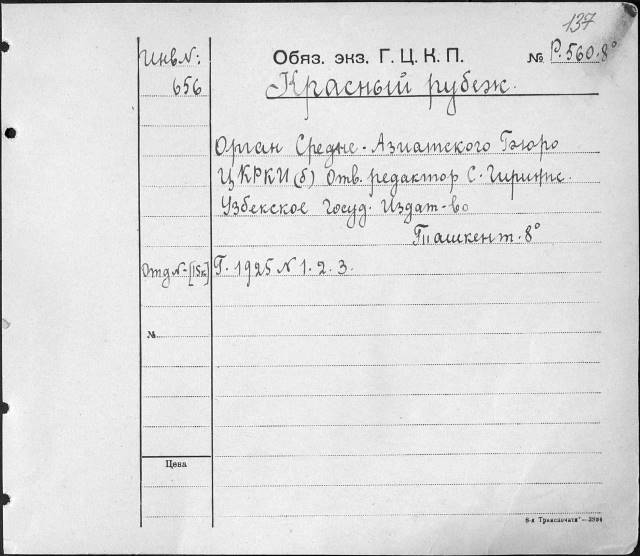 137
Инв.№:
656
Обяз. экз. Г. Ц. К. П.
№ Р.560.8°
Красный рубеж.
Орган Средне-Азиатского Бюро
ЦКРКП(б) Отв. редактор С.
Узбекское Госуд. Издат-во
Ташкент. 8°
Отд № [15к]
Г. 1925 № 1. 2. 3.
№
Цена
8-я „Транспечати"—3994